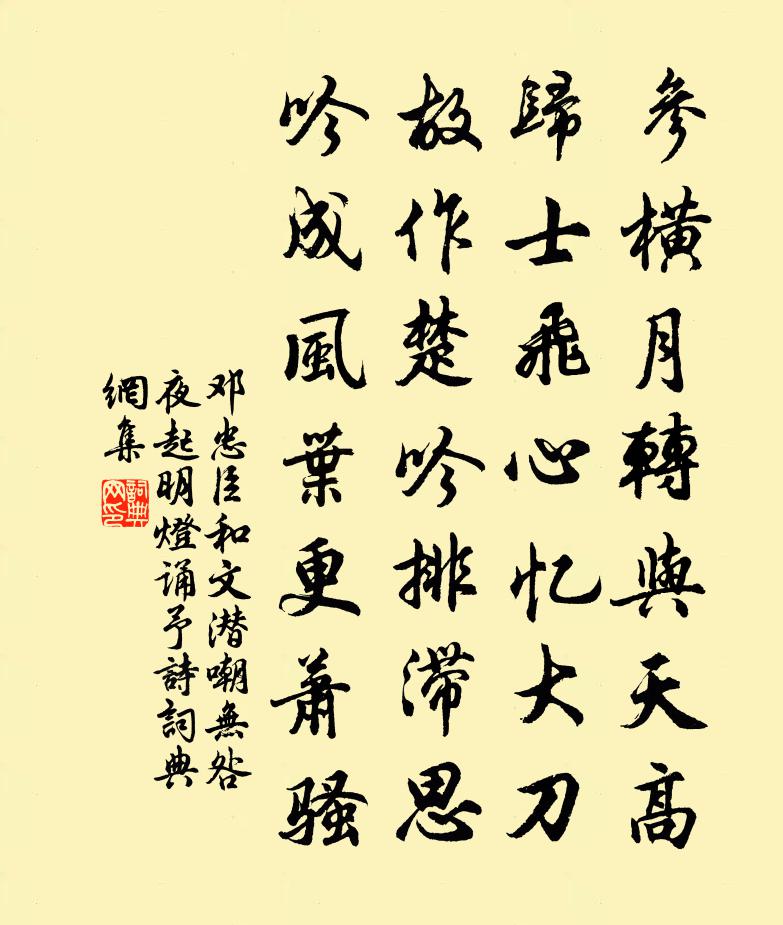 參橫月轉與天高
歸士飛心忆大刀
故作楚吟排滞思
吟成風葉更蕭骚
邓忠臣和文潜嘲無咎
夜起明燈诵予詩詞典
網集
詞典
网印